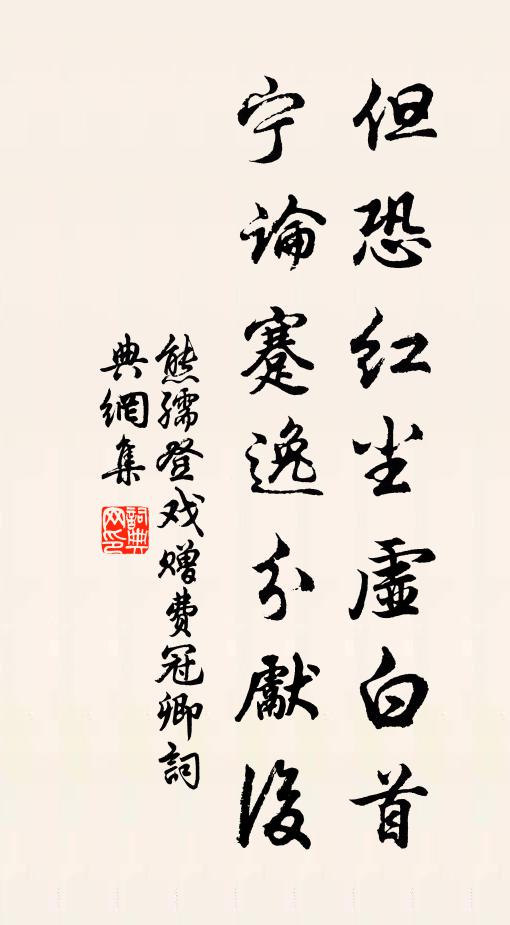 但恐红尘虚白首
宁論蹇逸分獻後
熊孺登戏赠費冠卿詞
典網集
詞典
网印